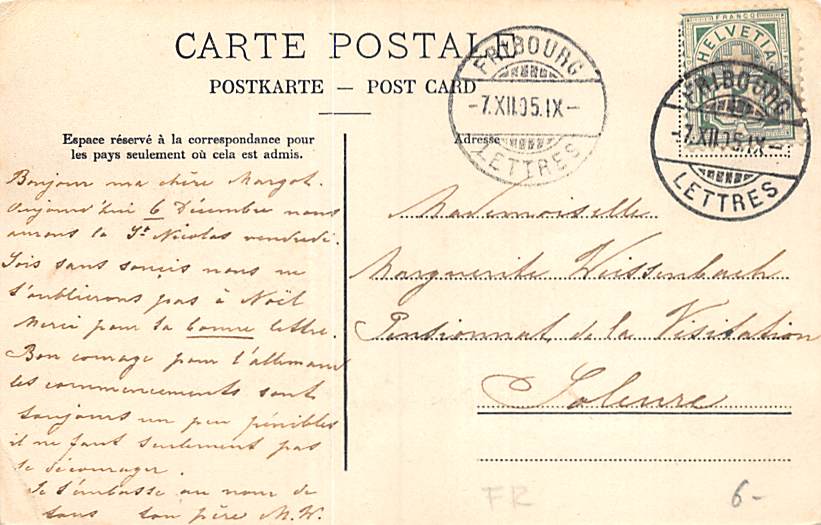 CARTE POSTALE
POSTKARTE — POST CARD
Espace réservé à la correspondance pour
les pays seulement où cela est admis.
Adresse
FRIBOURG
-7.XII.05.IX-
LETTRES
FRANCO
HELVETIA
FRIBOURG
-7.XII.05.IX-
LETTRES
Bonjour ma chère Margot.
Aujourd'hui 6 Décembre nous
aurons la St Nicolas vendredi.
Sois sans soucis nous ne
t'oublierons pas à Noël
Merci pour ta bonne lettre.
Bon courage pour l'allemand
les commencements sont
toujours un peu pénibles
il ne faut seulement pas
se décourager.
Je t'embrasse au nom de
tous ton père M.W.
Mademoiselle
Marguerite Weissenbach
Pensionnat de la Visitation
Soleure
FR
6-